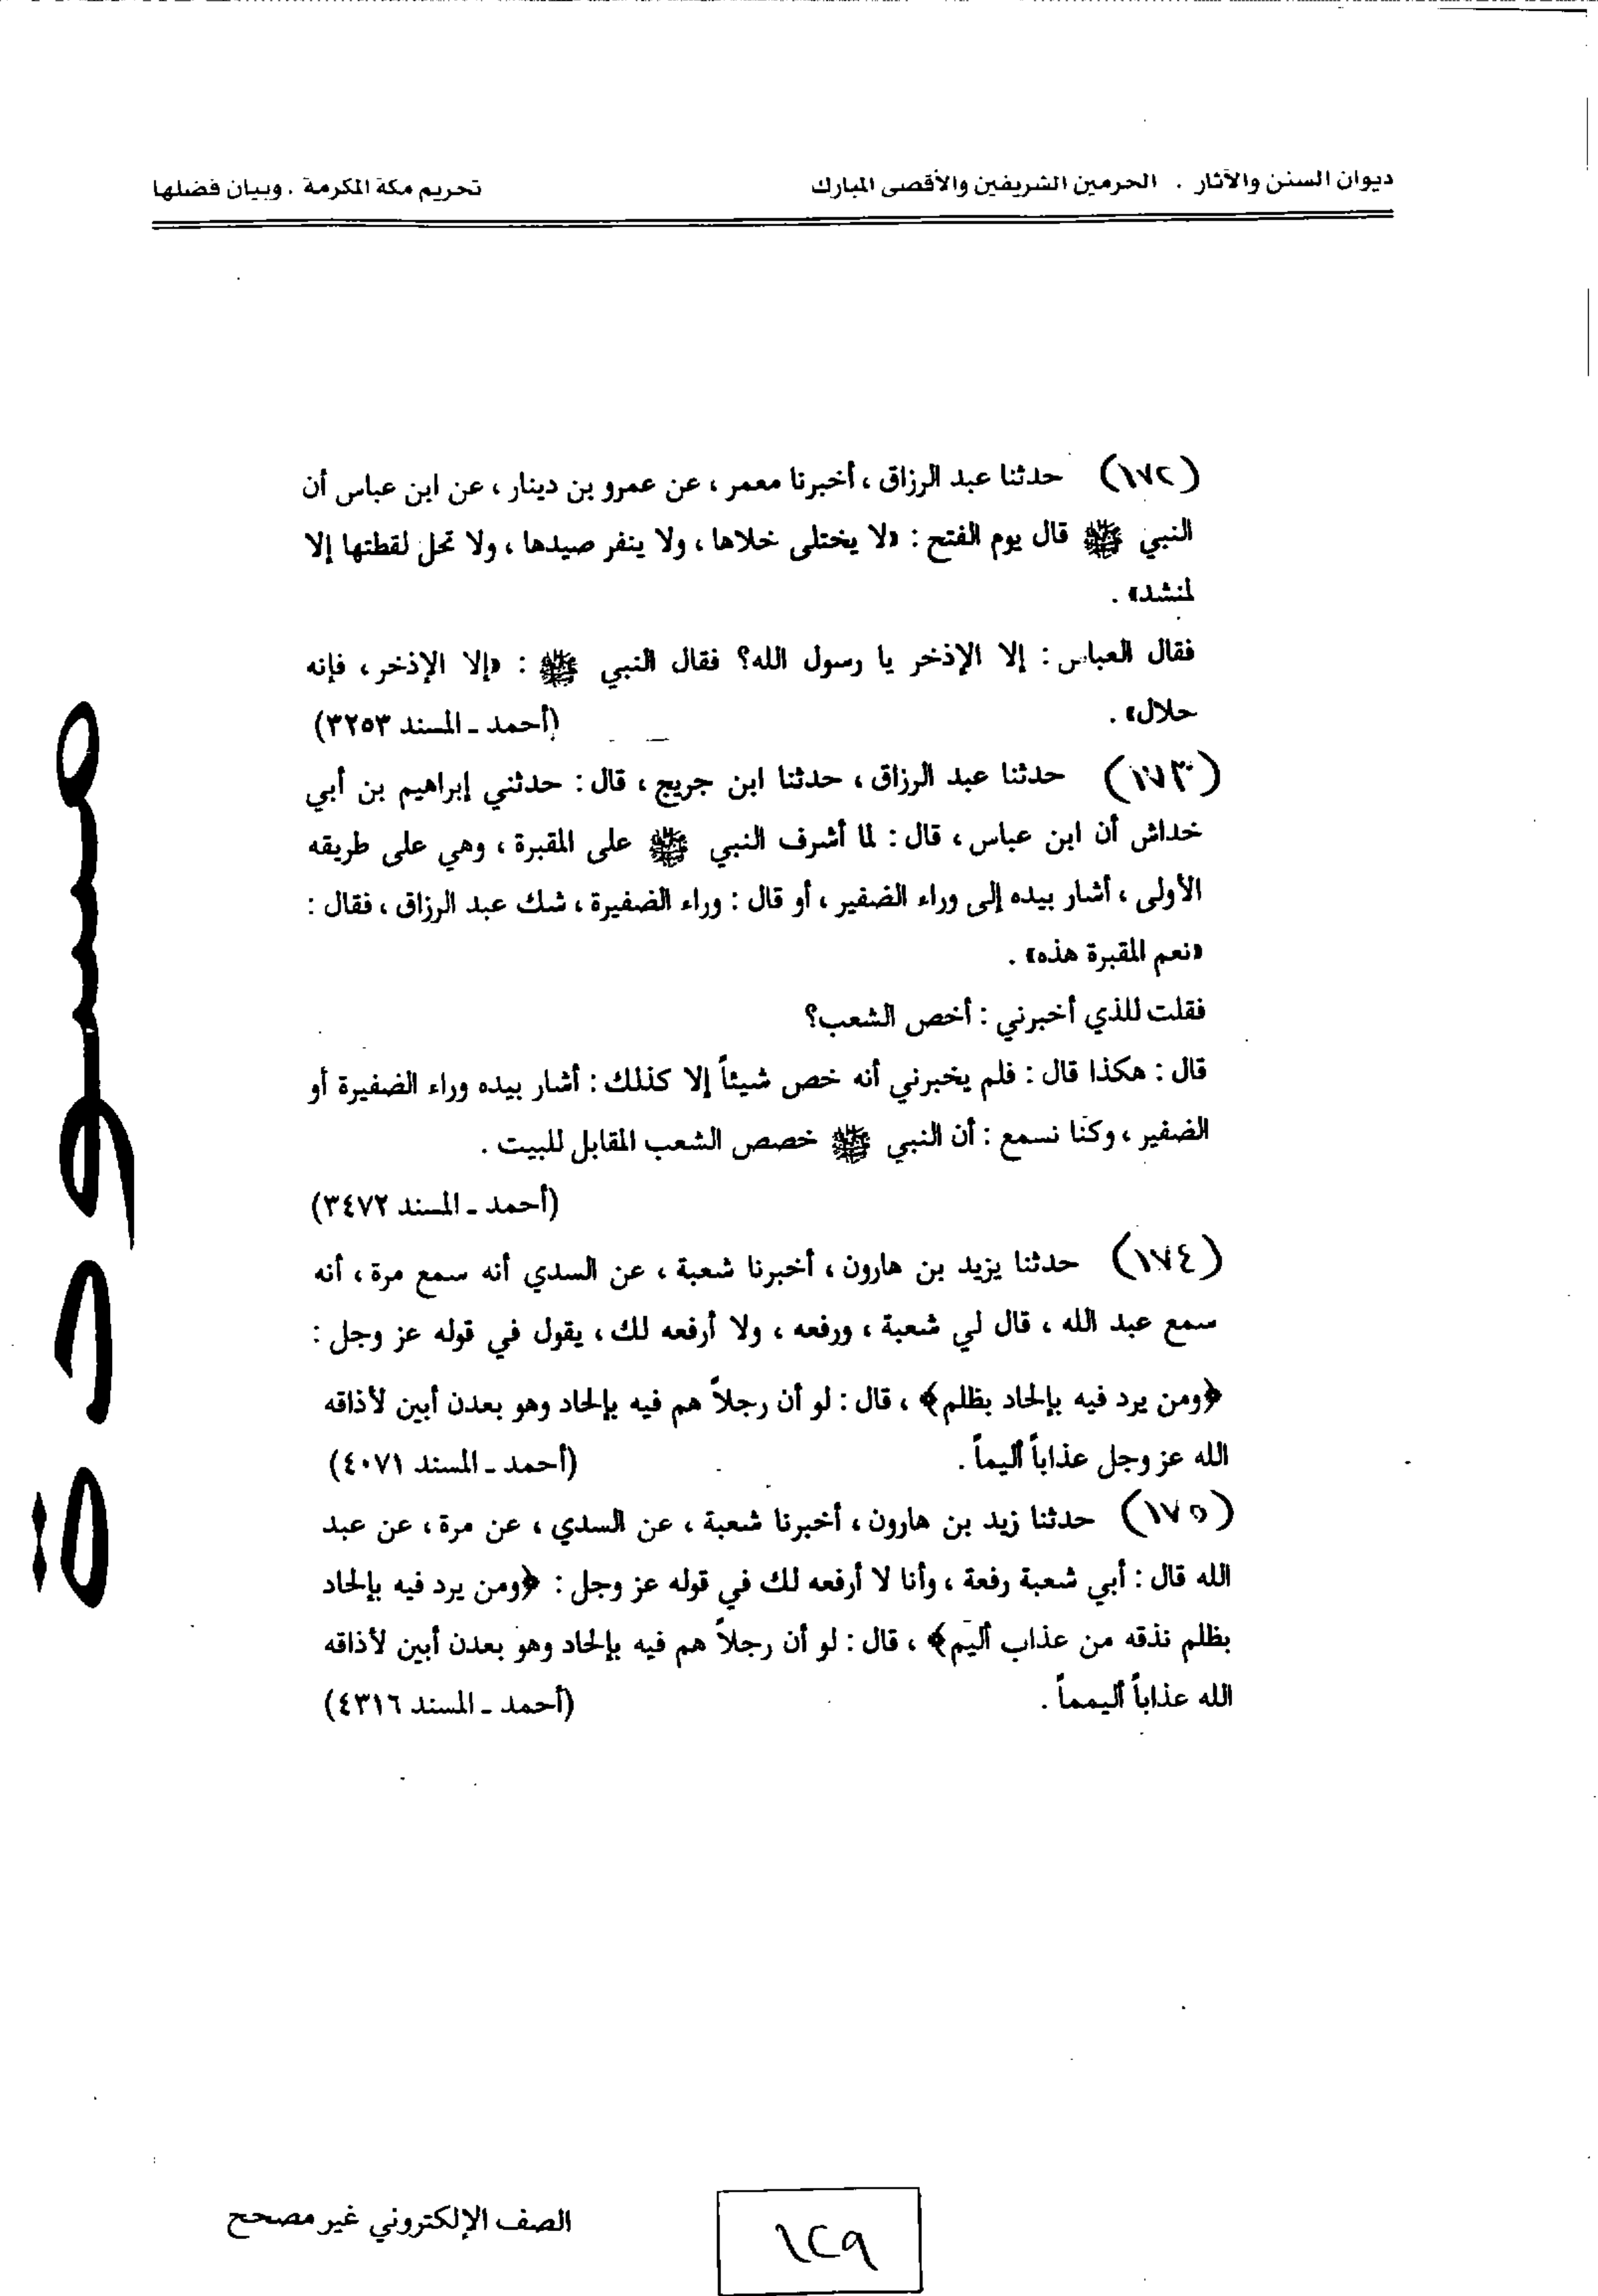 ديوان السنن والآثار . الحرمين الشريفين والأقصى المبارك
تحريم مكة المكرمة . وبيان فضلها
(١٧٢) حدثنا عبد الرزاق ، أخبرنا معمر ، عن عمرو بن دينار ، عن ابن عباس أن
النبي ﷺ قال يوم الفتح : «لا يختلى خلاها ، ولا ينفر صيدها ، ولا تحل لقطتها إلا
لمنشد» .
فقال العباس : إلا الإذخر يا رسول الله؟ فقال النبي ﷺ : «إلا الإذخر ، فإنه
حلال» . (أحمد ـ المسند ٣٢٥٣)
(١٧٣) حدثنا عبد الرزاق ، حدثنا ابن جريج ، قال : حدثني إبراهيم بن أبي
خداش أن ابن عباس ، قال : لما أشرف النبي ﷺ على المقبرة ، وهي على طريقه
الأولى ، أشار بيده إلى وراء الضفير ، أو قال : وراء الضفيرة ، شك عبد الرزاق ، فقال :
«نعم المقبرة هذه» .
فقلت للذي أخبرني : أخص الشعب؟
قال : هكذا قال : فلم يخبرني أنه خص شيئاً إلا كذلك : أشار بيده وراء الضفيرة أو
الضفير ، وكنا نسمع : أن النبي ﷺ خصص الشعب المقابل للبيت .
(أحمد ـ المسند ٣٤٧٢)
(١٧٤) حدثنا يزيد بن هارون ، أخبرنا شعبة ، عن السدي أنه سمع مرة ، أنه
سمع عبد الله ، قال لي شعبة ، ورفعه ، ولا أرفعه لك ، يقول في قوله عز وجل :
﴿ومن يرد فيه بإلحاد بظلم﴾ ، قال : لو أن رجلاً هم فيه بإلحاد وهو بعدن أبين لأذاقه
الله عز وجل عذاباً أليماً . (أحمد ـ المسند ٤٠٧١)
(١٧٥) حدثنا زيد بن هارون ، أخبرنا شعبة ، عن السدي ، عن مرة ، عن عبد
الله قال : أبي شعبة رفعة ، وأنا لا أرفعه لك في قوله عز وجل : ﴿ومن يرد فيه بإلحاد
بظلم نذقه من عذاب أليم﴾ ، قال : لو أن رجلاً هم فيه بإلحاد وهو بعدن أبين لأذاقه
الله عذاباً أليمماً . (أحمد ـ المسند ٤٣١٦)
مسودة
الصف الإلكتروني غير مصحح
١٢٩